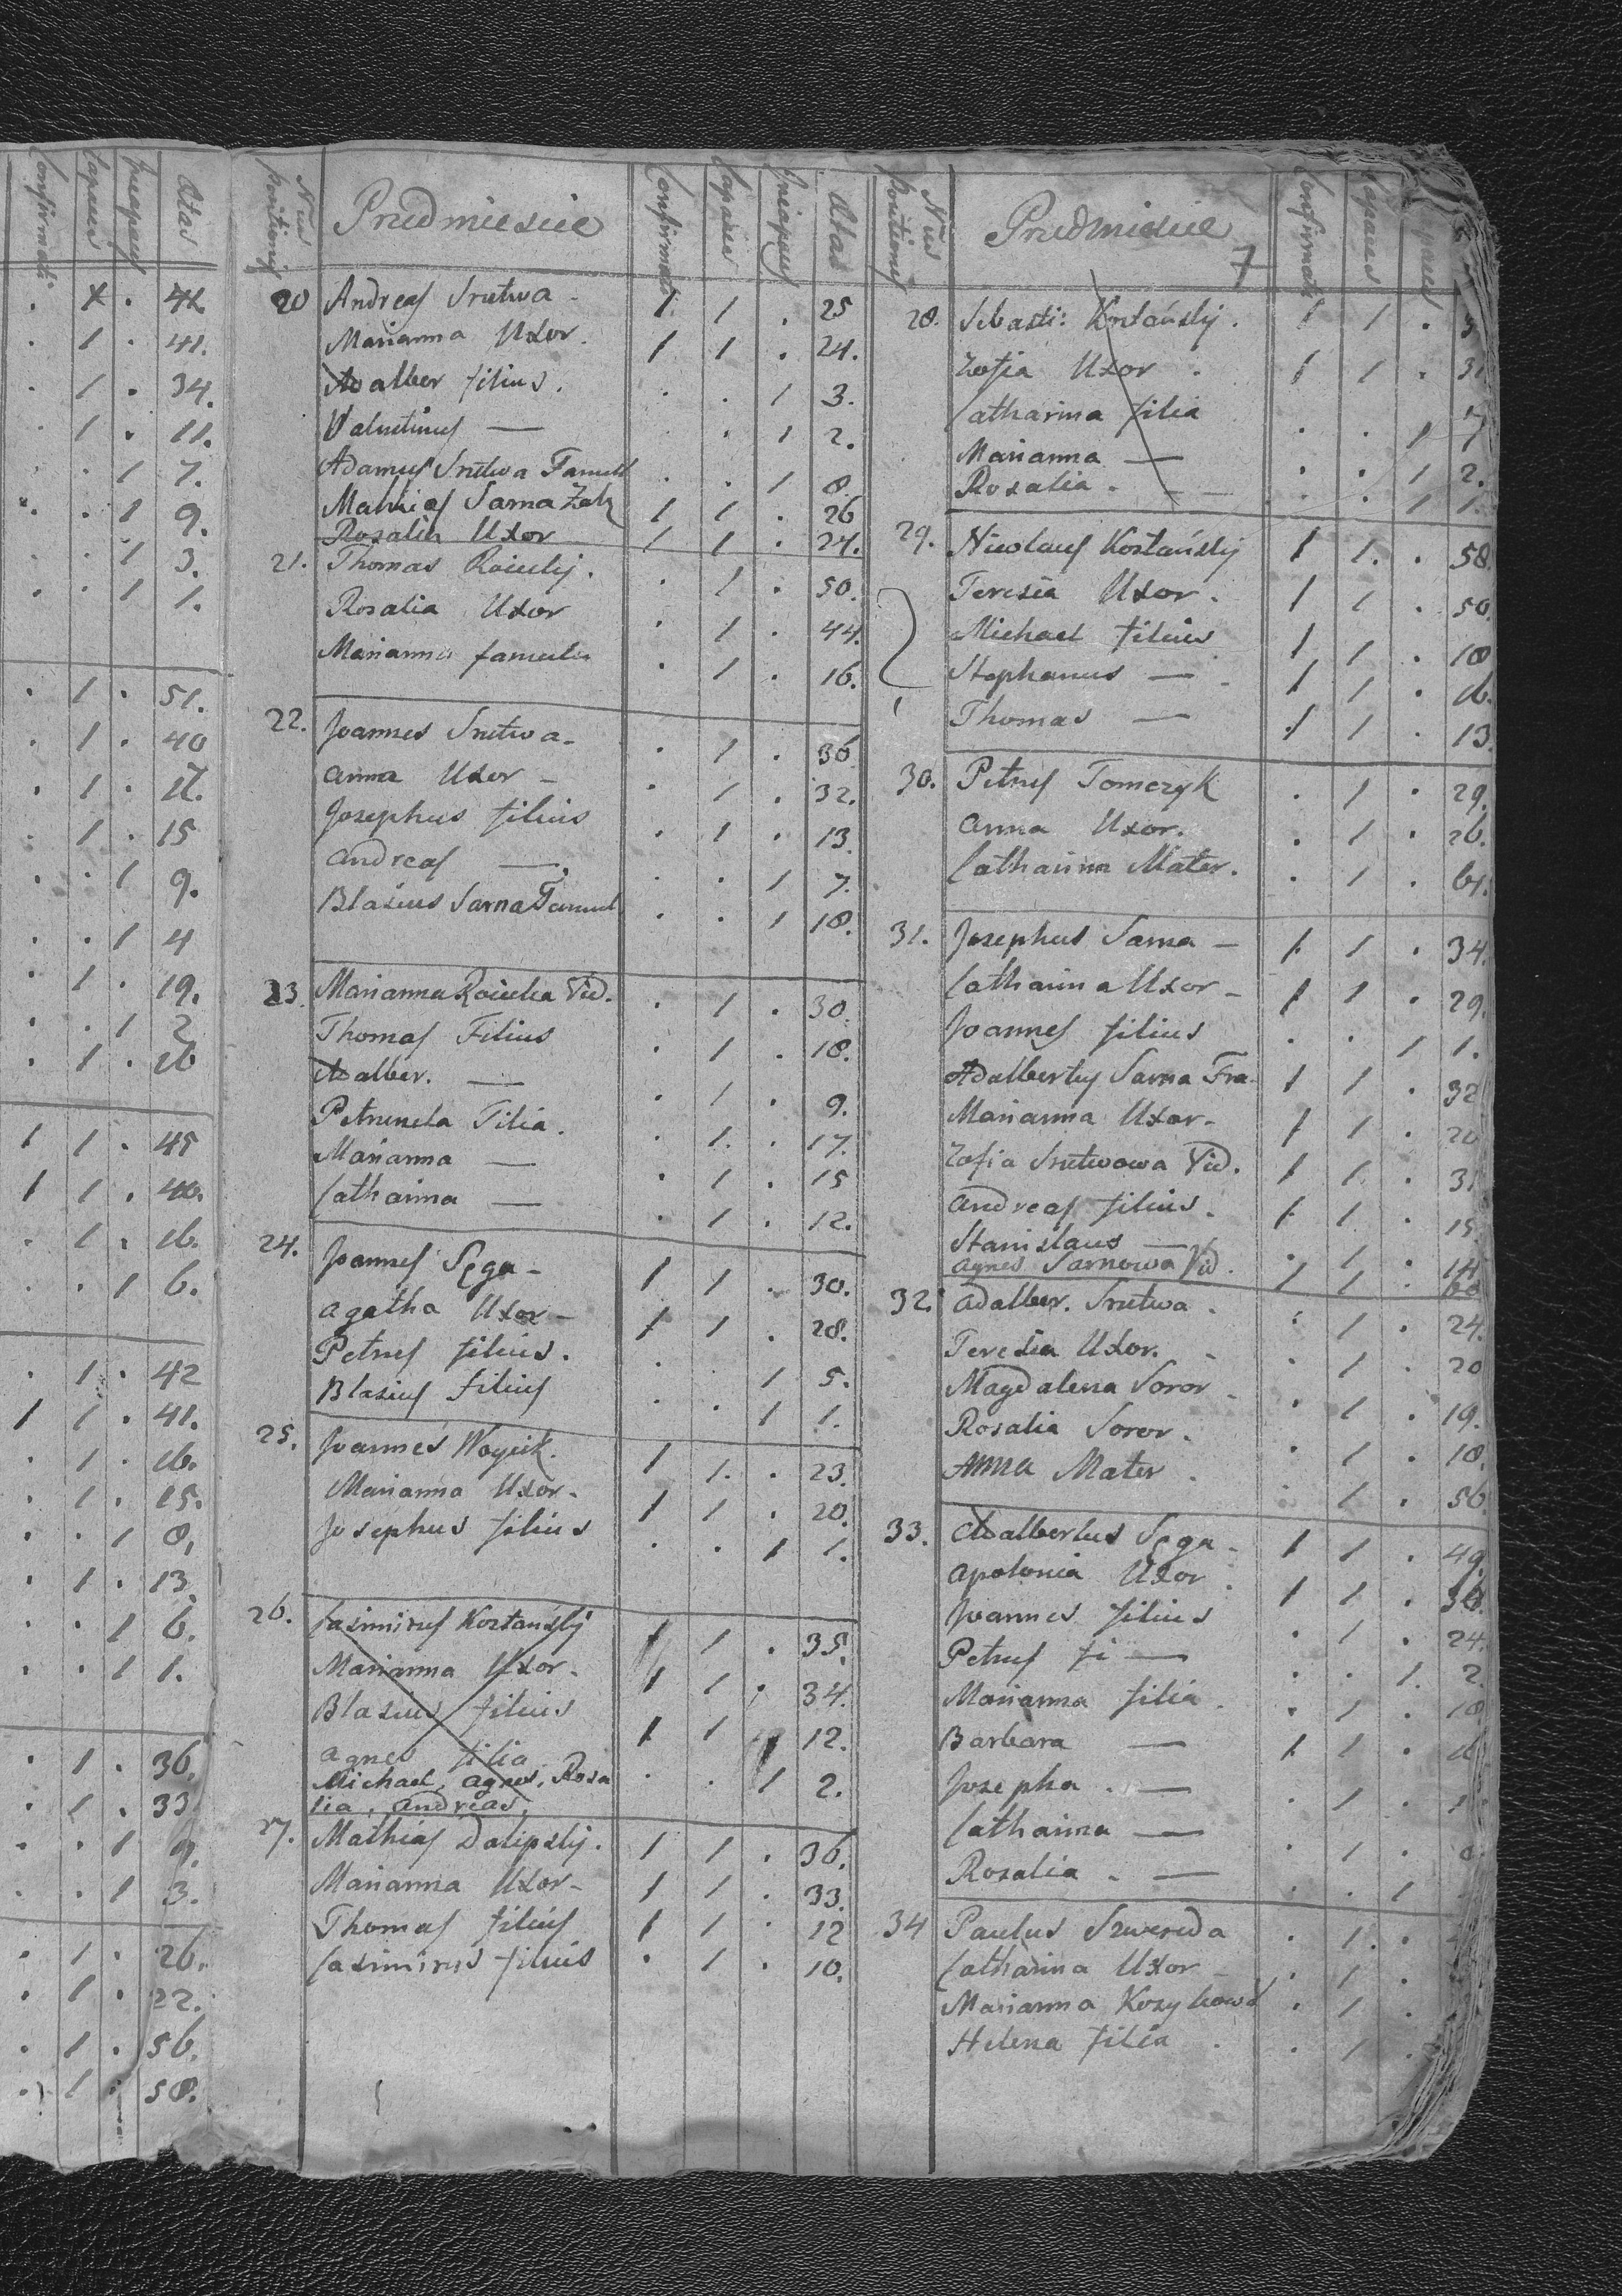 Confirmati Capaces Incapaces Ætas
. X . 42
. 1 . 41.
. 1 . 34.
. 1 . 11.
. . 1 7.
. . 1 9.
. . 1 3.
. . 1 1.
. 1 . 51.
. 1 . 40
. 1 . 17.
. 1 . 15
. . 1 9.
. . 1 4
. 1 . 19.
. . 1 2
. 1 . 26
1 1 . 45
1 1 . 40.
. 1 . 16.
. . 1 6.
. 1 . 42
1 1 . 41.
. 1 . 16.
. 1 . 15.
. . 1 8,
. 1 . 13.
. . 1 6.
. . 1 1.
. 1 . 36.
. 1 . 33
. . 1 9.
. . 1 3.
. 1 . 26.
. 1 . 22.
. 1 . 56.
. 1 . 58.
Nrus positionis Przedmiescie Confirmati Capaces Incapaces Ætas
20 Andreas Srutwa - 1 1 . 25
Marianna Uxor. 1 1 . 24.
Adalber filius. . . 1 3.
Valentinus — . . 1 2.
Adamus Srutwa Famul . . 1 8.
Mathias Sarna 1 1 . 26
Rosalia Uxor 1 1 . 24.
21. Thomas . 1 . 50.
Rosalia Uxor . 1 . 44.
Marianna famula . 1 . 16.
22. Joannes Srutwa - . 1 . 36
Anna Uxor - . 1 . 32.
Josephus filius . 1 . 13.
Andreas — . . 1 7.
Blasius Sarna Famul . . 1 18.
23. Marianna Vid. . 1 . 30.
Thomas Filius . 1 . 18.
Adalber. — . 1 . 9.
Petrunela Filia. . 1. . 17.
Marianna — . 1 . 15
Catharina — . 1 . 12.
24. Joannes Sęga - 1 1 . 30.
Agatha Uxor - 1 1 . 28.
Petrus filius. . . 1 5.
Blasius filius . . 1 1.
25. Joannes Woycik. 1 1. . 23.
Marianna Uxor. 1 1 . 20.
Josephus filius . . 1 1.
26. Casimirus Kosztański 1 1 . 35.
Marianna Uxor. 1 1 . 34.
Blasius filius 1 1 12.
Agnes filia . . 1 2.
Michael, Agnes, Rosa
lia, Andreas,
27. Mathias Dalipski. 1 1 . 36.
Marianna Uxor - 1 1 . 33.
Thomas filius 1 1 . 12
Casimirus filius . 1 . 10.
Nrus positionis Przedmiescie 7 Confirmati Capaces
28. Sebasti: Kosztański. 1 1 .
Zofia Uxor . 1 1 .
Catharina filia . . 1 7
Marianna — . . 1 2.
Rosalia . — . . 1 1.
29. Nicolaus Kosztański 1 1. . 58.
Teresia Uxor. 1 1 . 50.
Michael filius 1 1 . 18
Stephanus — 1 1 . 16.
Thomas — 1 1 . 13.
30. Petrus Tomczyk . 1 . 29.
Anna Uxor. . 1 . 26.
Catharina Mater. . 1 . 64.
31. Josephus Sarna - 1 1 . 34.
Catharina Uxor - 1 1 . 29.
Joannes filius . . 1 1.
Adalbertus Sarna Fra. 1 1 . 32
Marianna Uxor - 1 1 . 20
Zofia Srutwowa Vid. 1 1 .
Andreas filius. 1 1 . 15
Stanislaus — . 1 . 14
Agnes Sarnowa Vid. 1 1 . 60
32. Adalber. Srutwa . . 1 . 24.
Teresia Uxor. . 1 . 20
Magdalena Soror . 1 . 19.
Rosalia Soror. . 1 . 18.
Anna Mater . . 1 . 56
33. Adalbertus Sęga - 1 1 . 49.
Apolonia Uxor 1 1 . 38.
Joannes filius . 1 . 24.
Petrus fi — . . 1. 2.
Marianna filia . 1 . 18
Barbara — 1 1 .
Josepha . — . 1 .
Catharina — . 1 .
Rosalia . — . . 1
34 Paulus Szweruda . 1. .
Catharina Uxor . 1 .
Marianna . 1 .
Helena filia . . 1 .